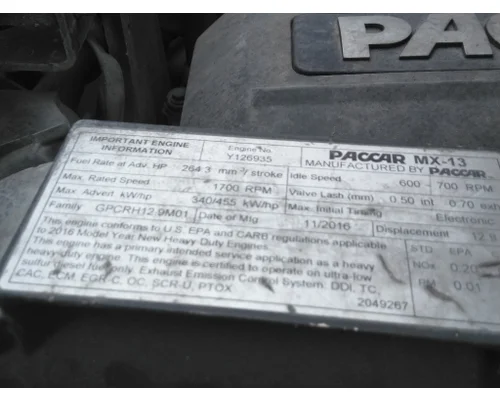 PAC
IMPORTANT ENGINE INFORMATION
Engine No. Y126935
PACCAR MX-13
MANUFACTURED BY PACCAR
Fuel Rate at Adv. HP 264.3 mm³/stroke
Idle Speed 600 700 RPM
Max. Rated Speed 1700 RPM
Valve Lash (mm) 0.50 int 0.70 exh
Max. Advert. kW/hp 340/455 kW/hp
Max. Initial Timing Electronic
Family GPCRH12.9M01
Date of Mfg 11/2016
Displacement 12.9
This engine conforms to U.S. EPA and CARB regulations applicable
to 2016 Model Year New Heavy Duty Engines.
This engine has a primary intended service application as a heavy
heavy-duty engine. This engine is certified to operate on ultra-low
sulfur diesel fuel only. Exhaust Emission Control System: DDI, TC,
CAC, ECM, EGR-C, OC, SCR-U, PTOX
STD EPA
NOx 0.20
PM 0.01
2049267